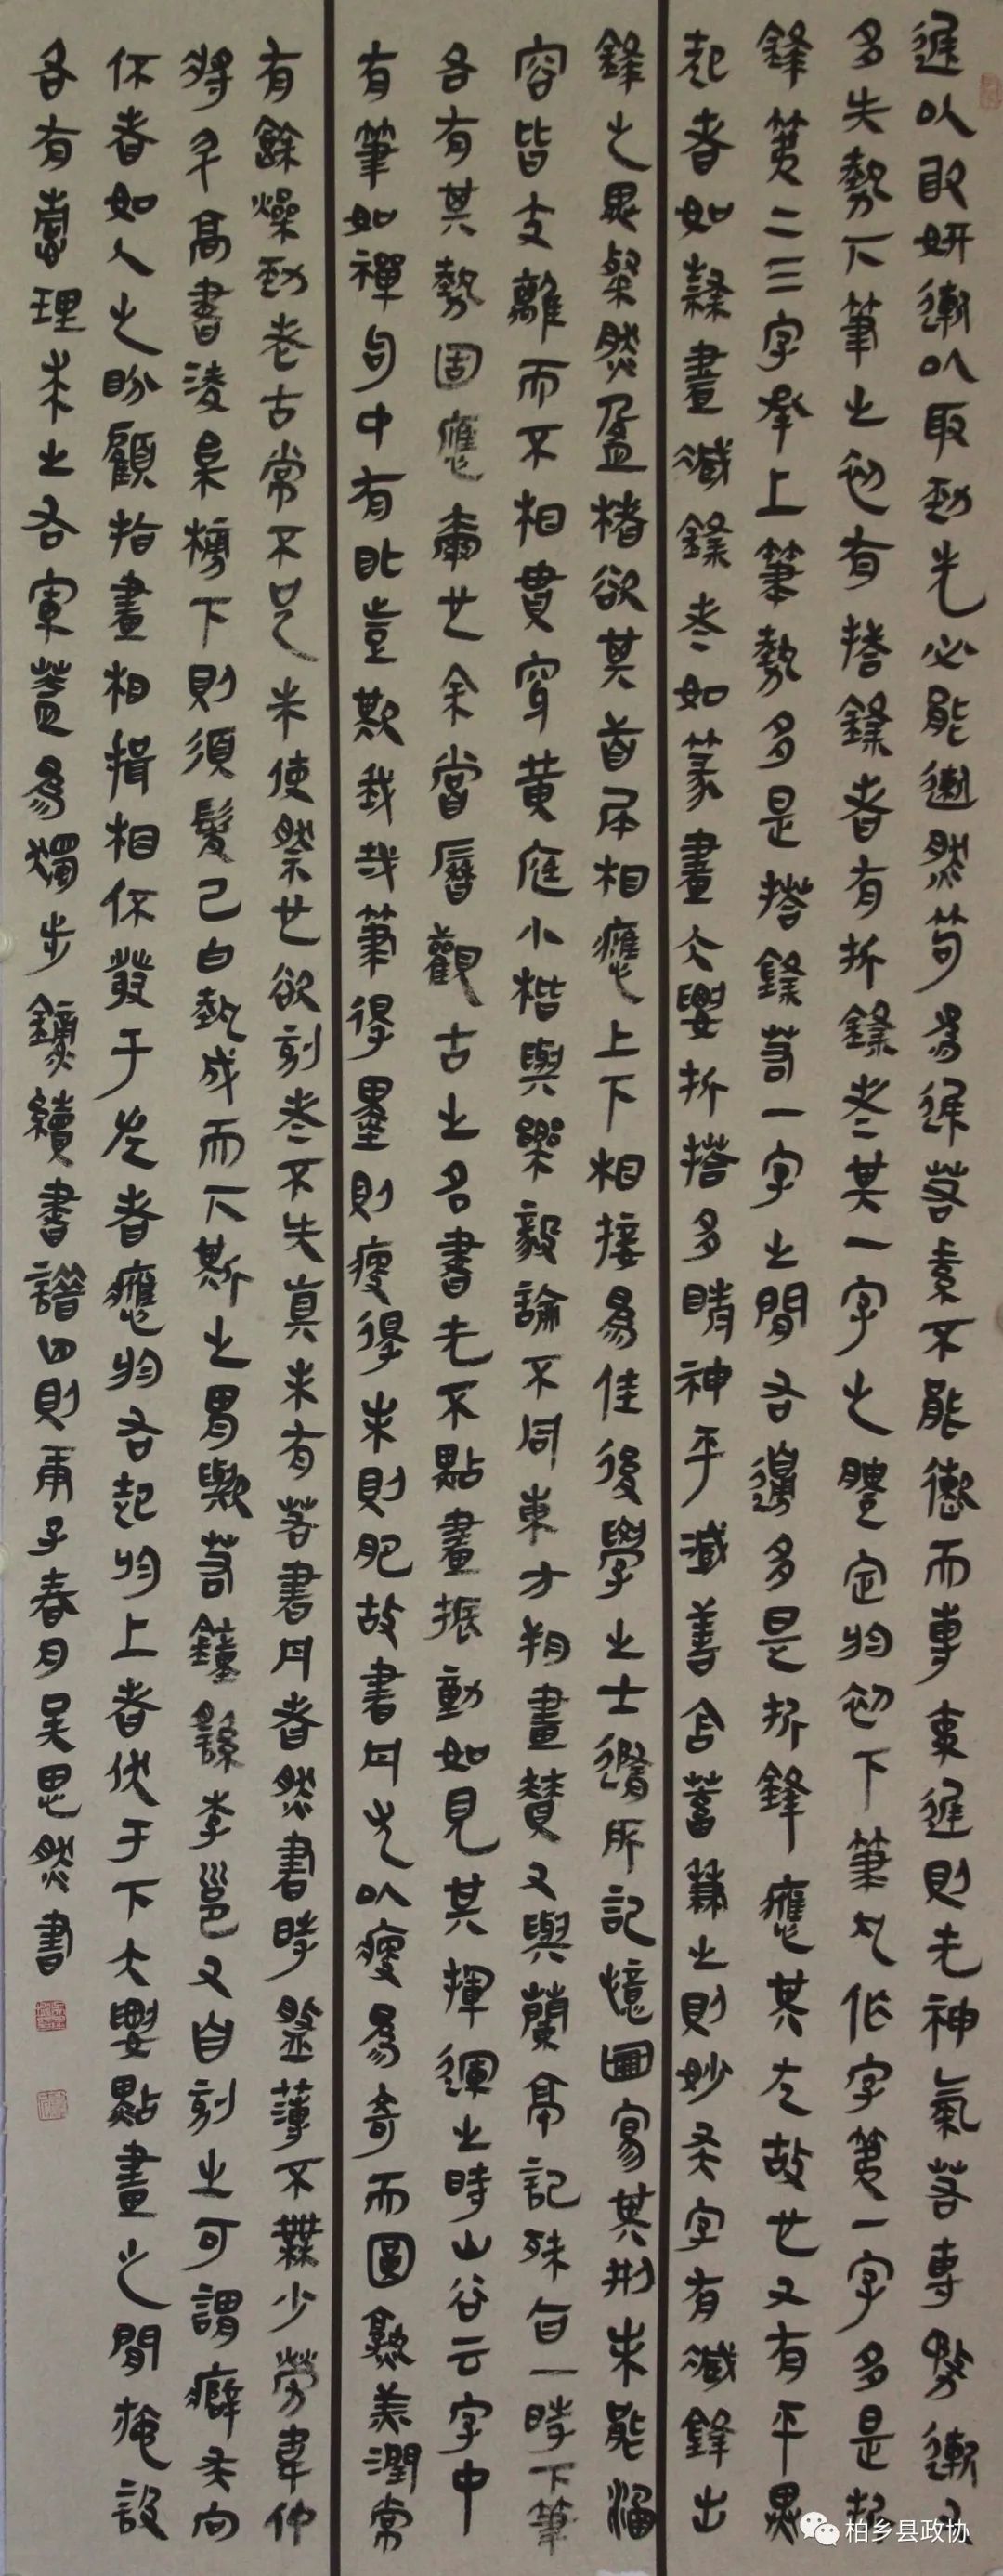 遲以取妍遫以取勁先必能遫然後爲遲若素不能遫而專事遲則无神氣若專務遫又
多失勢下筆之初有搭鋒者有折鋒者其一字之體定於初下筆凡作字第一字多是折
鋒第二三字承上筆勢多是搭鋒若一字之間右邊多是折鋒應其左故也又有平
起者如隸畫藏鋒者如篆畫大要折搭多精神平藏善含蓄兼之則妙矣字有藏鋒出
鋒之異粲然盈楮欲其首尾相應上下相接爲佳後學之士隨所記憶圖寫其形未能涵
容皆支離而不相貫穿黃庭小楷與樂毅論不同東方朔畫贊又與蘭亭記殊旨一時下筆
各有其勢固應爾也余嘗歷觀古之名書无不點畫振動如見其揮運之時山谷云字中
有筆如禪句中有眼豈欺我哉筆得墨則瘦得朱則肥故書丹尤以瘦爲奇而圓熟美潤常
有餘燥勁老古常不足朱使然也欲刻者不失真未有若書丹者然書時盤薄不無少勞韋仲
將升高書淩雲榜下則須髮已白藝成而下斯之謂歟若鍾繇李邕又自刻之可謂癖矣向
背者如人之盼顧指畫相揖相背發于左者應於右起於上者伏于下大要點畫之間施設
各有情理求之右軍蓋爲獨步錄續書譜四則甲子春月吳思然書
柏乡县政协